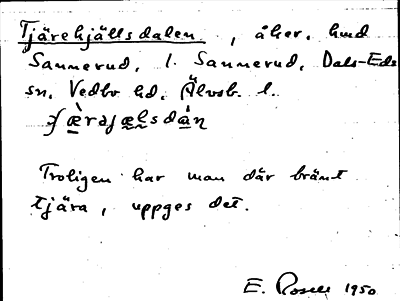 Tjärehjällsdalen, åker, hmd
Sannerud, l. Sannerud, Dals-Eds
sn, Vedbo hd, Älvsb. l.
Troligen har man där bränt
tjära, uppges det.
E. Rosell 1950